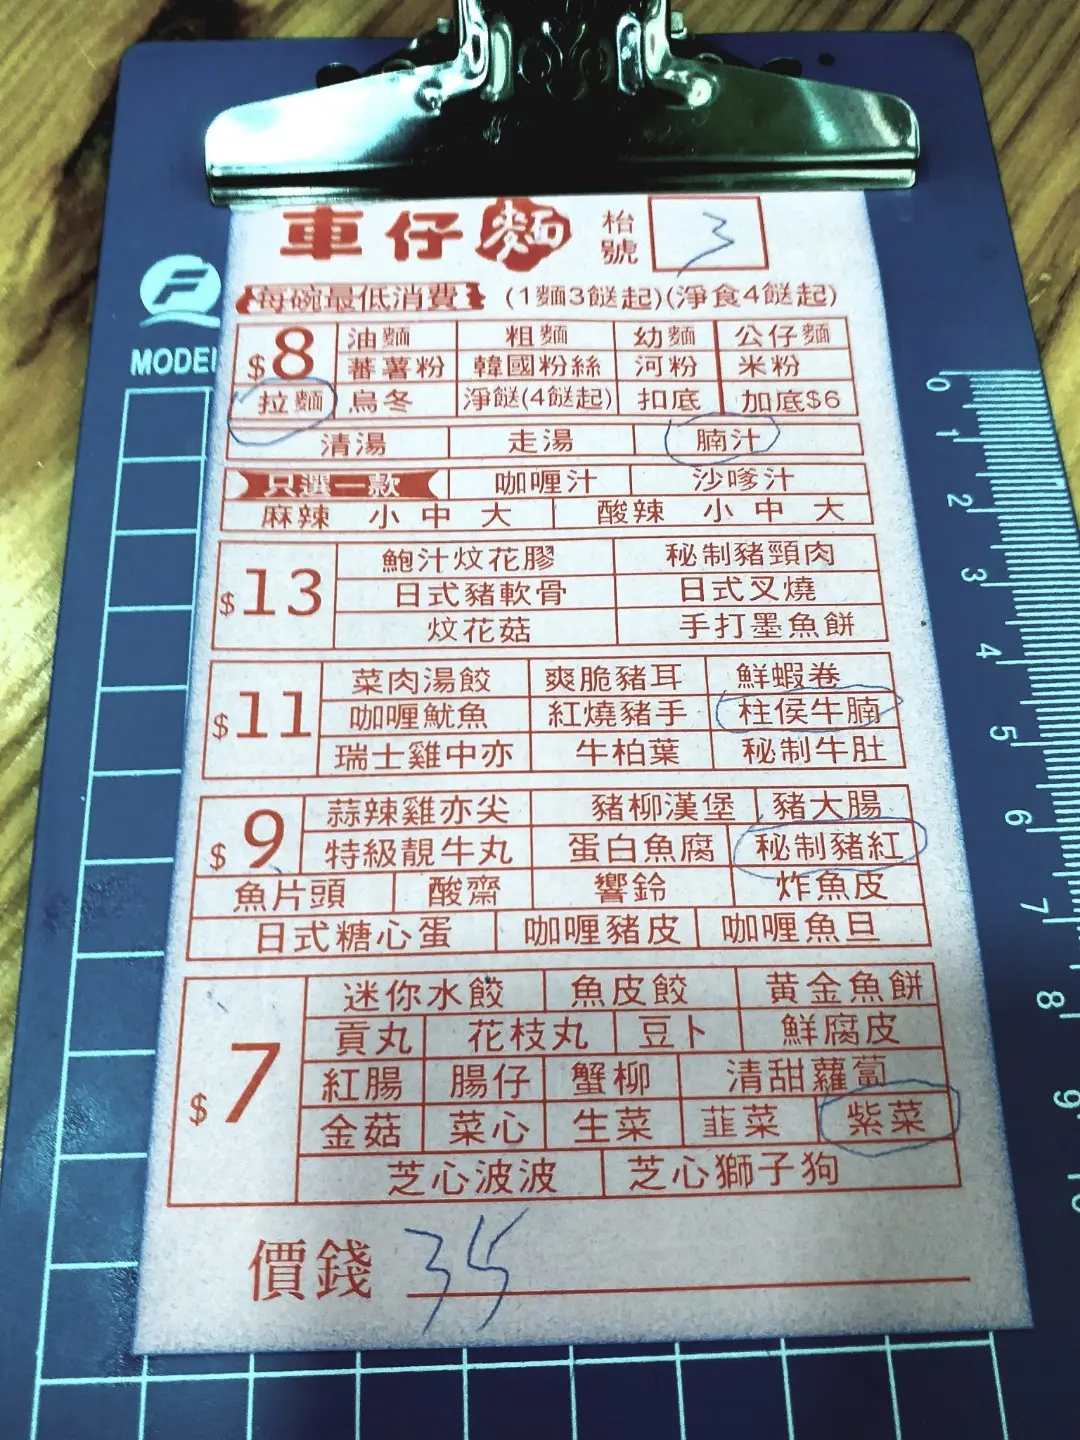 車仔麵 枱號 3
每碗最低消費 (1麵3餸起)(淨食4餸起)
$8 油麵 粗麵 幼麵 公仔麵
蕃薯粉 韓國粉絲 河粉 米粉
拉麵 烏冬 淨餸(4餸起) 扣底 加底$6
清湯 走湯 腩汁
只選一款 咖喱汁 沙嗲汁
麻辣 小 中 大 酸辣 小 中 大
$13 鮑汁炆花膠 秘制豬頸肉
日式豬軟骨 日式叉燒
炆花菇 手打墨魚餅
$11 菜肉湯餃 爽脆豬耳 鮮蝦卷
咖喱魷魚 紅燒豬手 柱侯牛腩
瑞士雞中亦 牛柏葉 秘制牛肚
$9 蒜辣雞亦尖 豬柳漢堡 豬大腸
特級靚牛丸 蛋白魚腐 秘制豬紅
魚片頭 酸齋 響鈴 炸魚皮
日式糖心蛋 咖喱豬皮 咖喱魚旦
$7 迷你水餃 魚皮餃 黃金魚餅
貢丸 花枝丸 豆卜 鮮腐皮
紅腸 腸仔 蟹柳 清甜蘿蔔
金菇 菜心 生菜 韮菜 紫菜
芝心波波 芝心獅子狗
價錢 35
MODEL
0
1
2
3
4
5
6
7
8
9
10